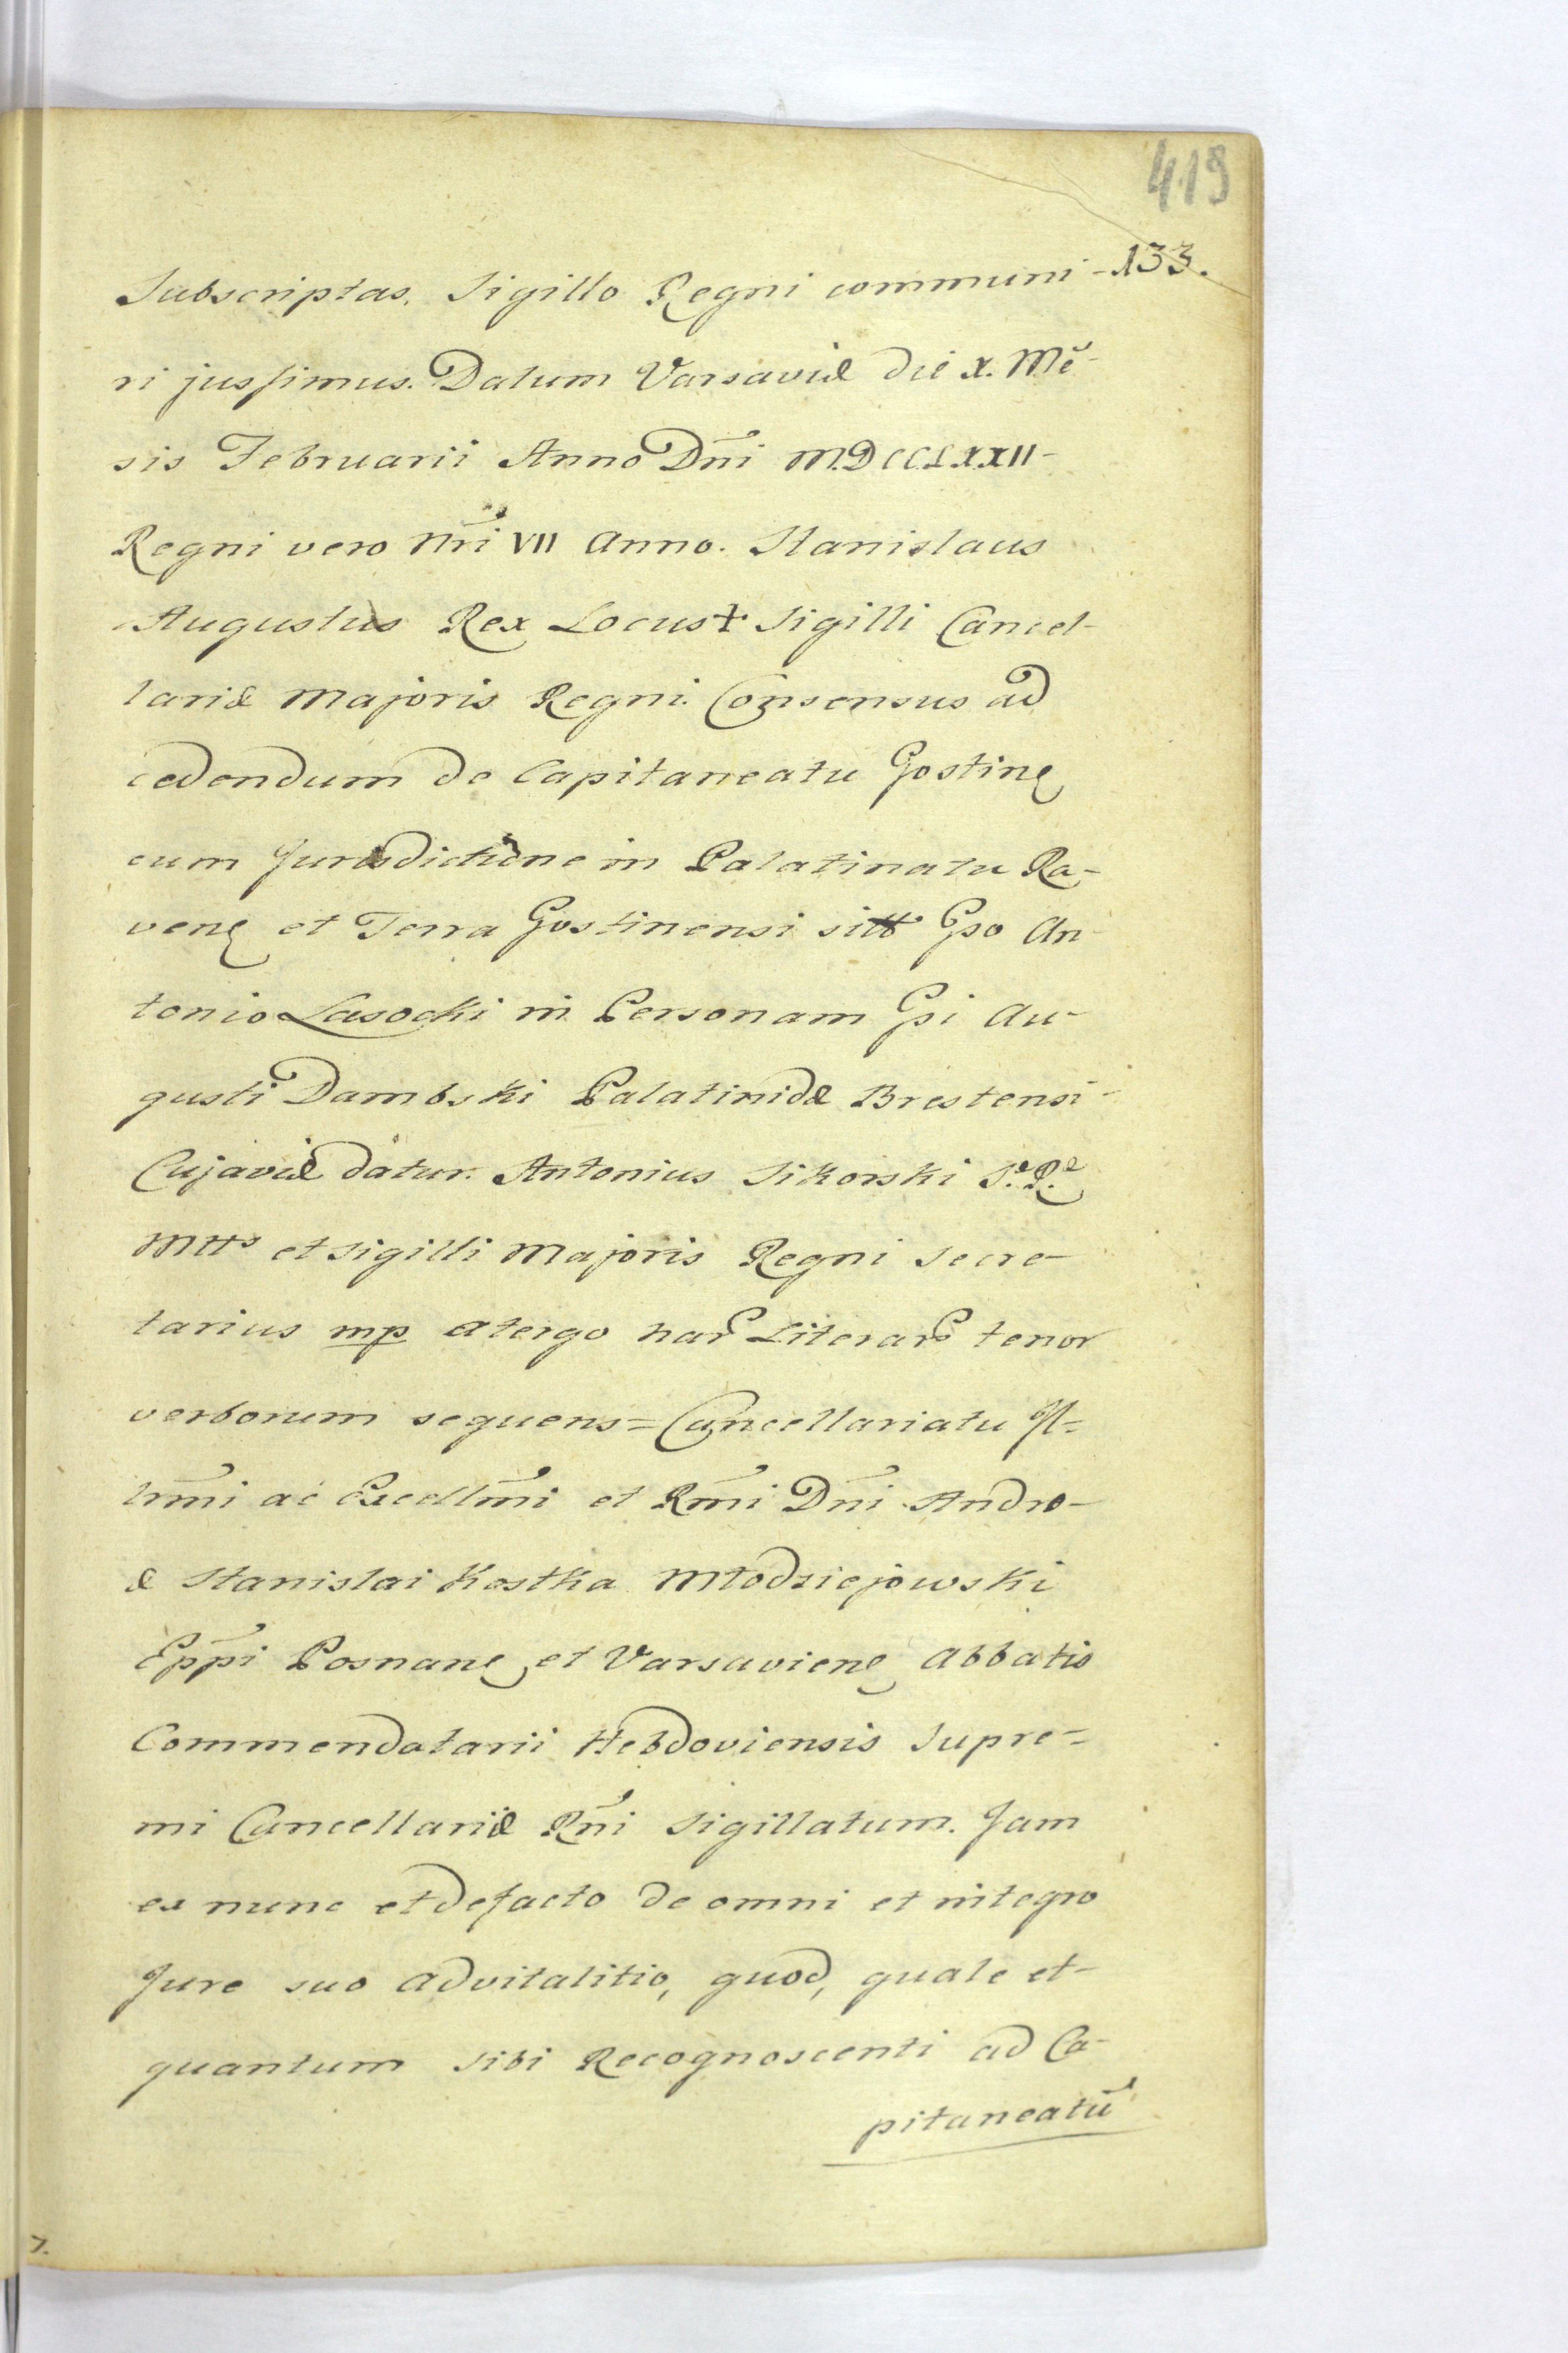 419
133.
Subscriptas. Sigillo Regni communi-
ri jussimus. Datum Varsaviæ die X. Mẽ-
sis Februarii Anno Dñi MDCCLXXII-
Regni vero Nri VII Anno. Stanislaus
Augustus Rex Locus + Sigilli Cancel-
lariæ Majoris Regni. Consensus ad
cedendum de Capitaneatu Gostinę
cum Jurisdictione in Palatinatu Ra-
venę et Terra Gostinensi sitt Gso An-
tonio Lasocki in Personam Gsi Au-
gusti Dambski Palatinidæ Brestensi-
Cujaviæ datur. Antonius Sikorski S. R.
Mtts et Sigilli Majoris Regni Secre-
tarius mp atergo har Literar tenor
verborum sequens = Cancellariatu Il=
lrmi ac Excellmi et Rmi Dñi Andre-
æ Stanislai Kostka Młodziejowski
Eppi Posnanę et Varsavienę Abbatis
Commendatarii Hebdoviensis Supre=
mi Cancellariæ Rni Sigillatum. Jam
ex nunc et defacto de omni et integro
Jure suo advitalitio, quod, quale et-
quantum sibi Recognoscenti ad Ca-
pitaneatũ